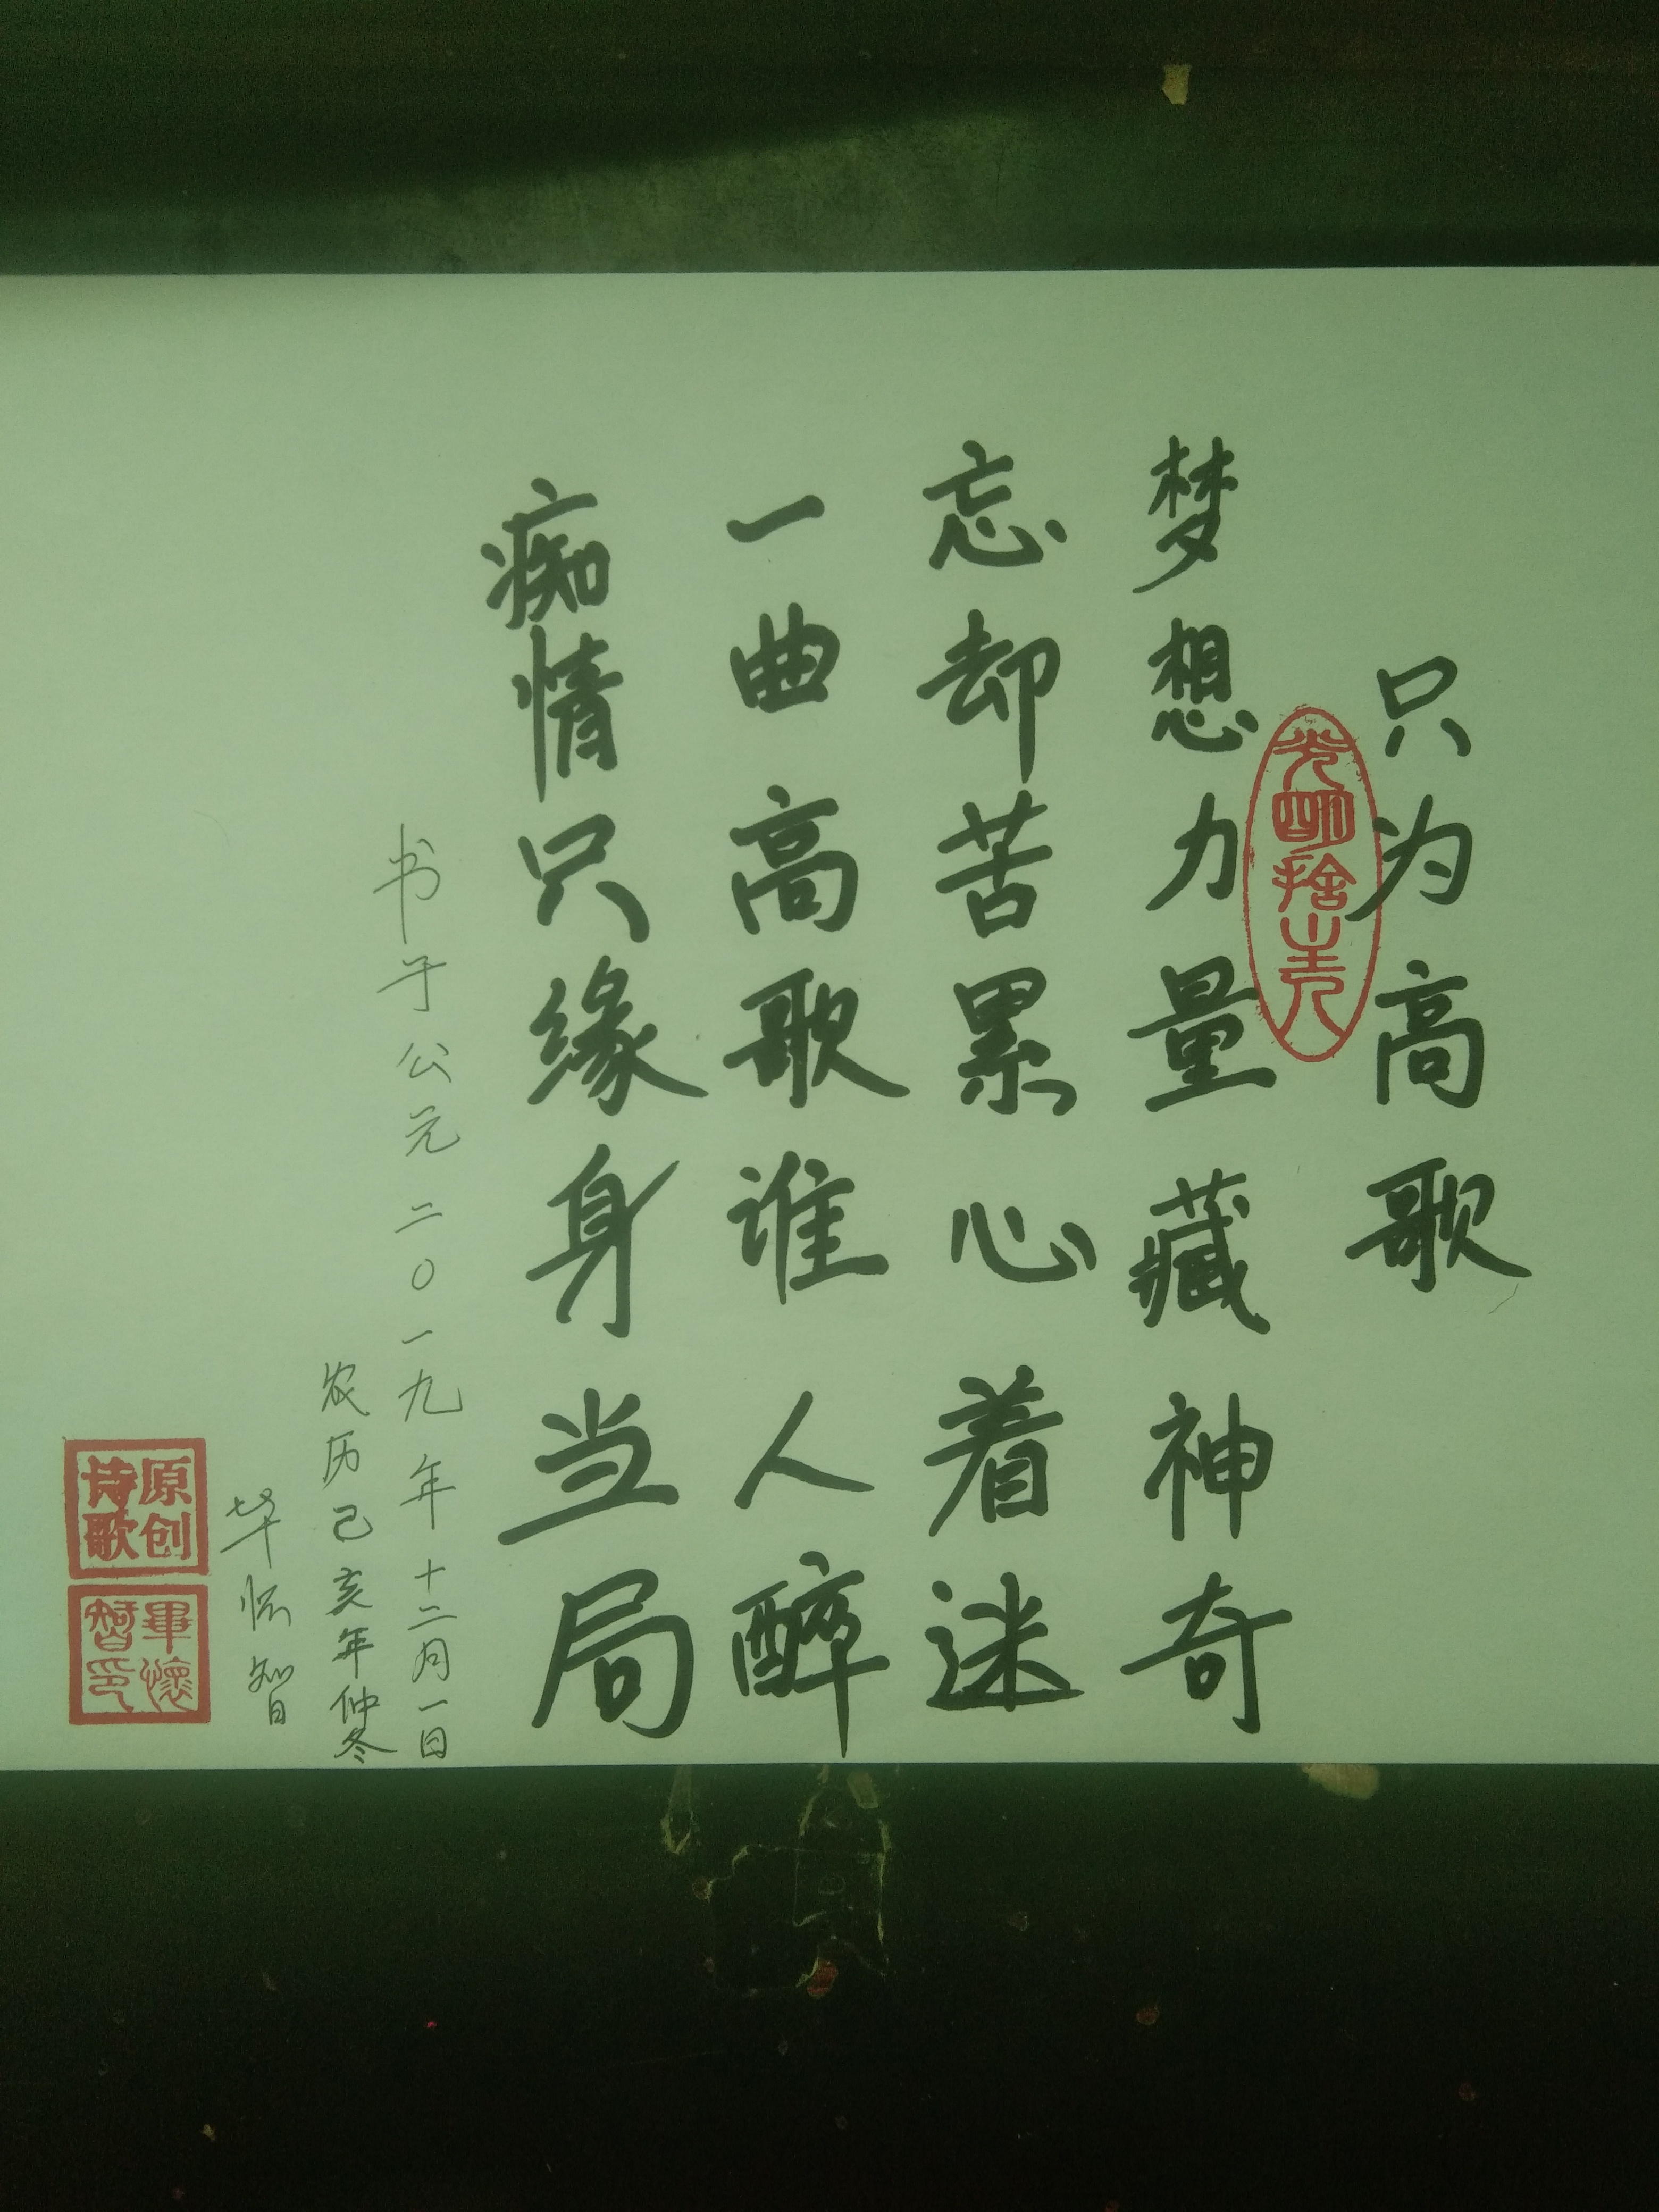 只为高歌
梦想力量藏神奇
忘却苦累心着迷
一曲高歌谁人醉
痴情只缘身当局
书于公元二〇一九年十二月一日
农历己亥年仲冬
毕怀智
原创
诗歌
畢懷
智印